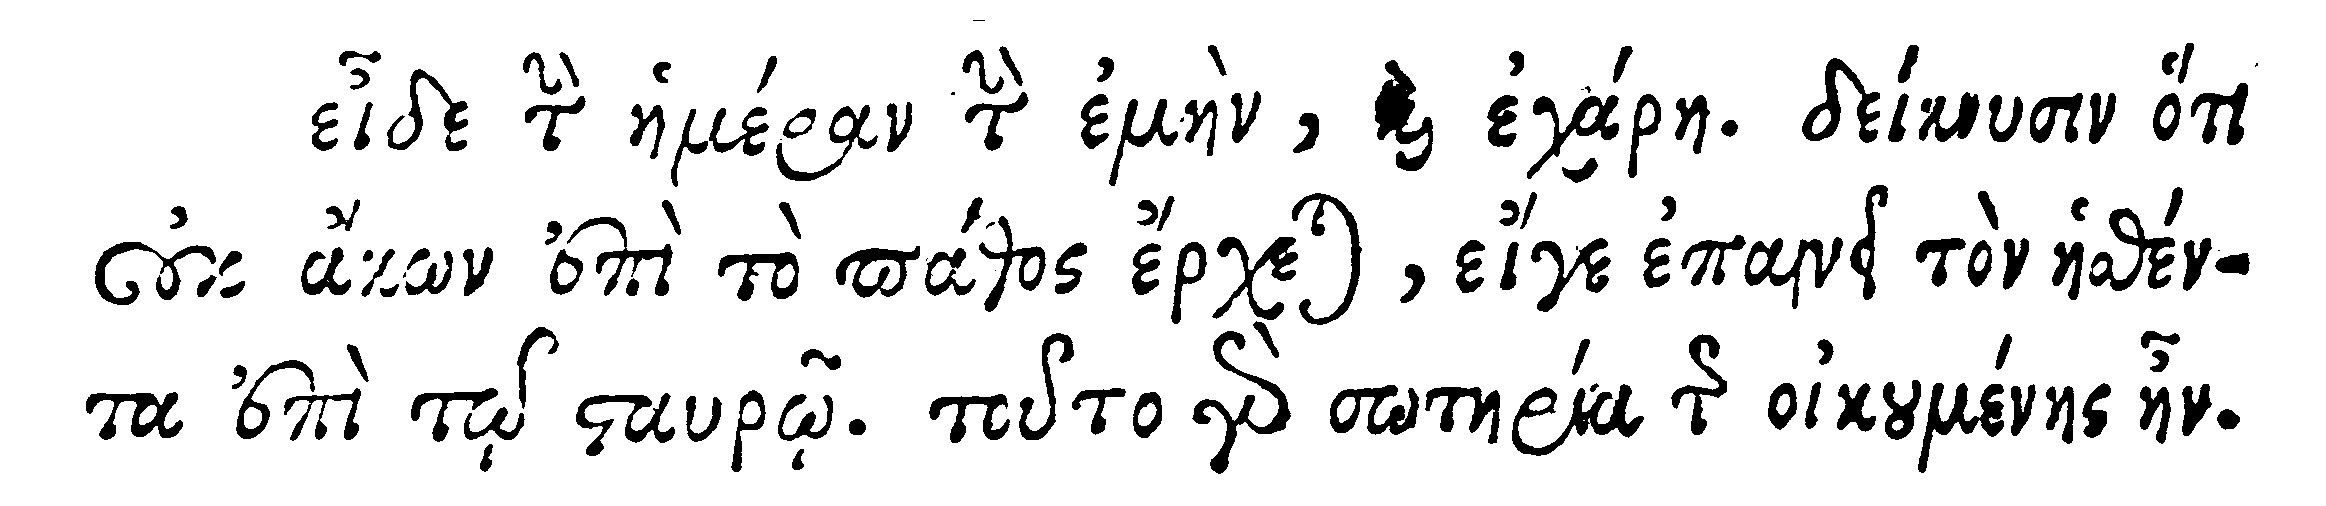 εἶδε τὴν ἡμέραν τὴν ἐμὴν, καὶ ἐχάρη. δείκνυσιν ὅτι
οὐκ ἄκων ἐπὶ τὸ πάθος ἔρχεται, εἴγε ἐπαινεῖ τὸν ἡσθέν-
τα ἐπὶ τῷ σταυρῷ. τοῦτο γὰρ σωτηρία τῆς οἰκουμένης ἦν.